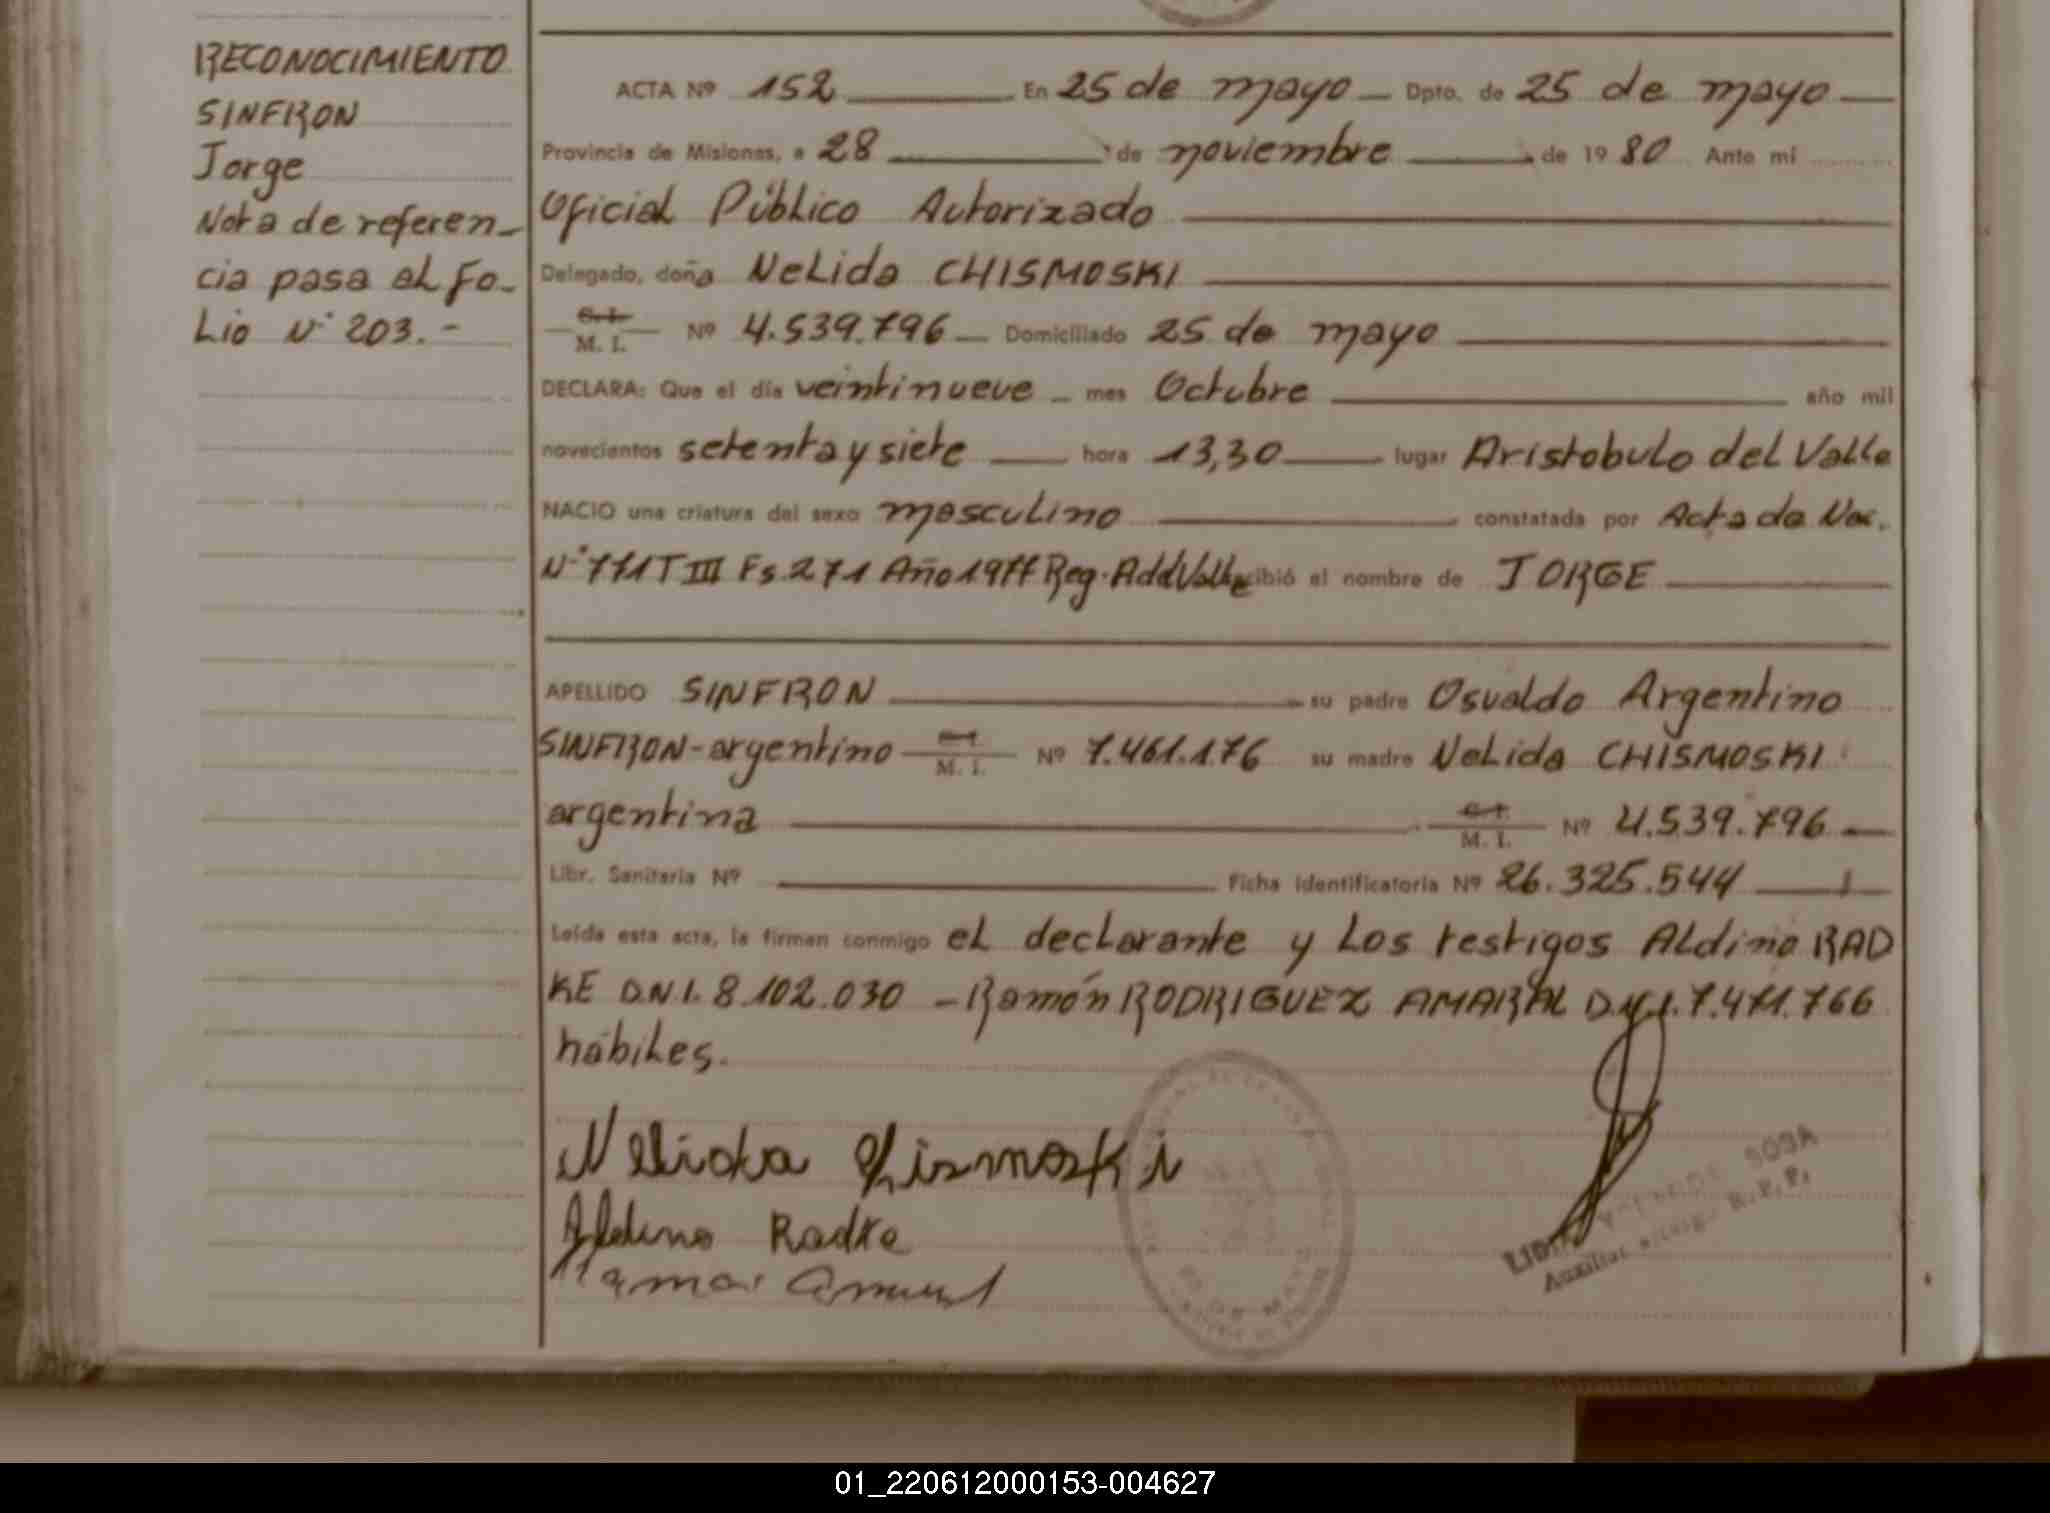 RECONOCIMIENTO
SINFRON
Jorge
Nota de referen-
cia pasa al Fo-
Lio N° 203.-
ACTA Nº 152 En 25 de mayo Dpto. de 25 de mayo
Provincia de Misiones, a 28 de noviembre de 1980 Ante mí
Oficial Público Autorizado
Delegado, doña NeLida CHISMOSKI
C.I. M. I. Nº 4.539.796 Domiciliado 25 de mayo
DECLARA: Que el día veintinueve mes Octubre año mil
novecientos setenta y siete hora 13,30 lugar Aristobulo del Valle
NACIO una criatura del sexo masculino constatada por Acta de Nac.
N° 771 T III Fs. 271 Año 1977 Reg. AddValle cibió el nombre de JORGE
APELLIDO SINFRON su padre Osvaldo Argentino
SINFRON-argentino M. I. Nº 7.461.176 su madre NeLida CHISMOSKI
argentina C.I. M. I. Nº 4.539.796
Libr. Sanitaria Nº Ficha Identificatoria Nº 26.325.544
Leída esta acta, la firman conmigo eL decLarante y Los testigos ALdino RAD
KE D.N.I. 8.102.030 - Ramón RODRIGUEZ AMARAL D.N.I. 7.471.766
hábiLes.
Nelida Chismoski
Aldino Radke
25 DE MAYO
SOSA
Auxiliar R.P.P.
01_220612000153-004627